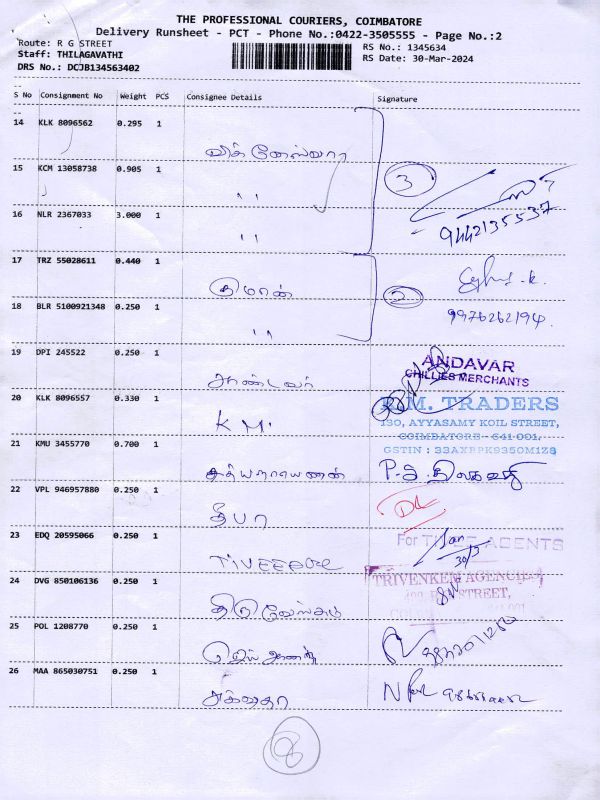 THE PROFESSIONAL COURIERS, COIMBATORE
Delivery Runsheet - PCT - Phone No.:0422-3505555 - Page No.:2
Route: R G STREET
Staff: THILAGAVATHI
DRS No.: DCJB134563402
RS No.: 1345634
RS Date: 30-Mar-2024
S No Consignment No Weight PCS Consignee Details Signature
14 KLK 8096562 0.295 1
விக்னேஸ்வரா
15 KCM 13058738 0.905 1
" 3
16 NLR 2367033 3.000 1
" 9442135537
17 TRZ 55028611 0.440 1
2
18 BLR 5100921348 0.250 1
" 9976262194
19 DPI 245522 0.250 1
ஆண்டவர்
ANDAVAR
CHILLIES MERCHANTS
20 KLK 8096557 0.330 1
K M.
TRADERS
130, AYYASAMY KOIL STREET,
COIMBATORE - 641 001.
GSTIN : 33AXPPK9350M1Z8
21 KMU 3455770 0.700 1
சத்யநாராயணன்
22 VPL 946957880 0.250 1
தீபா
23 EDQ 20595066 0.250 1
For AGENTS
30/3
24 DVG 850106136 0.250 1
TRIVENKEM AGENCIES
STREET,
25 POL 1208770 0.250 1
26 MAA 865030751 0.250 1
8